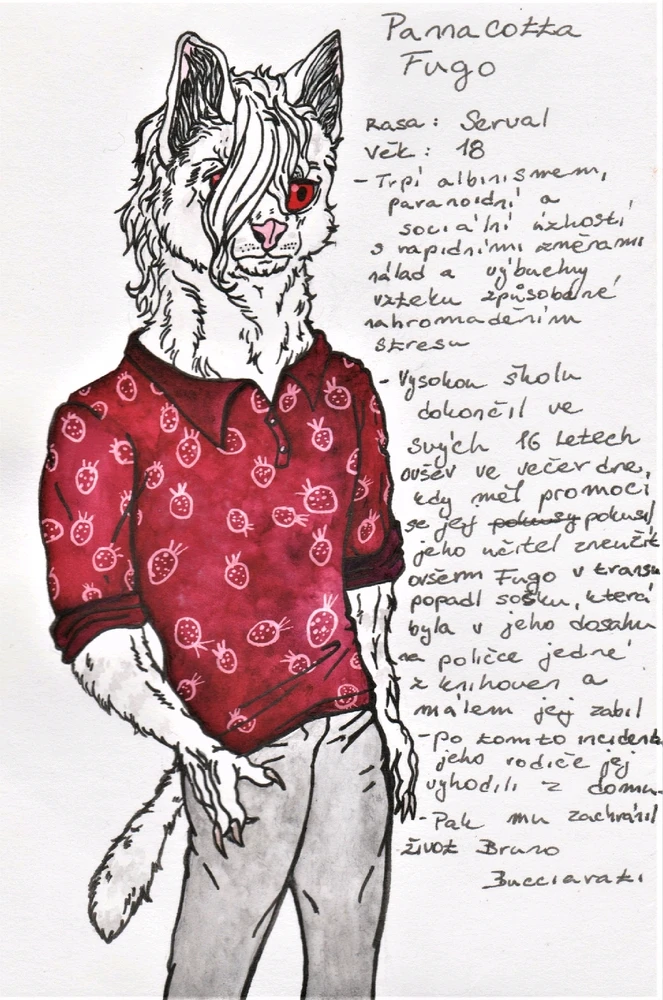 Pannacotta
Fugo
Rasa: Serval
Věk: 18
-Trpí albinismem,
paranoidní a
sociální úzkostí
s rapidními změnami
nálad a výbuchy
vzteku způsobené
nahromaděním
stresu
-Vysokou školu
dokončil ve
svých 16 letech
ovšev ve večer dne,
kdy měl promoci
se jej pokusy pokusil
jeho učitel zneužít
ovšem Fugo v transu
popadl sošku, která
byla v jeho dosahu
na poličce jedné
z knihoven a
málem jej zabil
-Po tomto incidentu
jeho rodiče jej
vyhodili z domu.
-Pak mu zachránil
život Bruno
Bucciarati